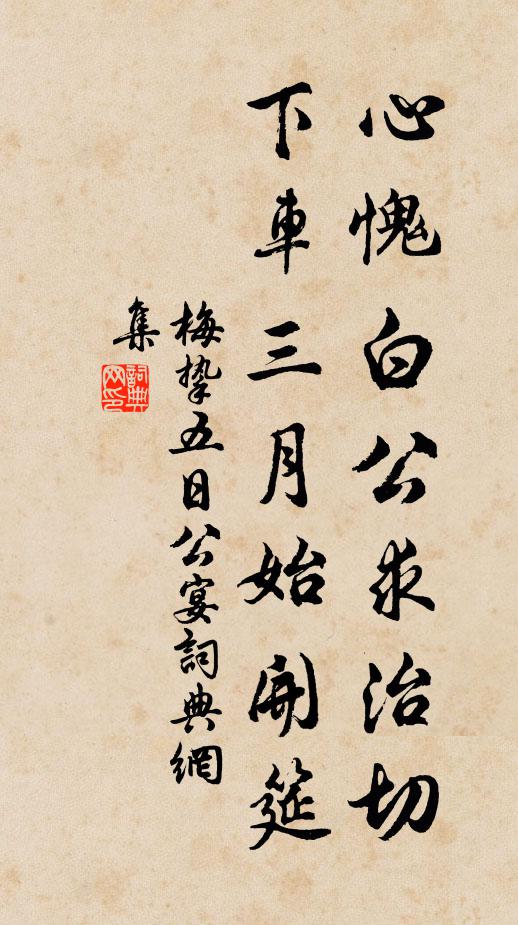 心愧白公求治切
下車三月始開筵
梅摯五日公宴詞典網
集
詞典
網印